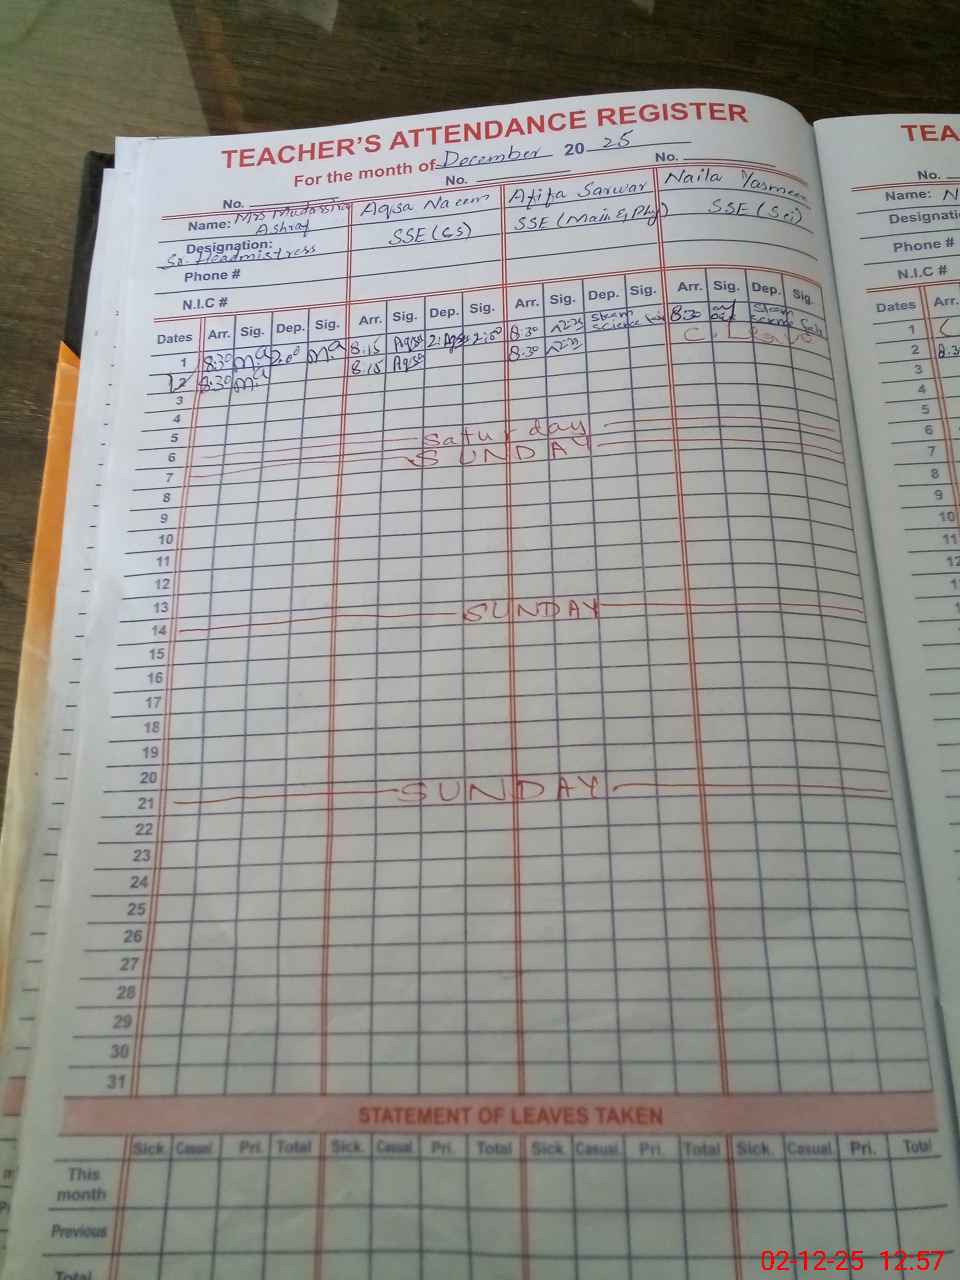 TEACHER'S ATTENDANCE REGISTER
For the month of December 20 25
No. No. No.
Name: Mrs Mudassira Ashraf Aqsa Naeem Atifa Sarwar Naila Yasmeen
Designation: Sr. Headmistress SSE (CS) SSE (Math & Phy) SSE (Sci)
Phone #
N.I.C #
Dates Arr. Sig. Dep. Sig. Arr. Sig. Dep. Sig. Arr. Sig. Dep. Sig. Arr. Sig. Dep. Sig.
1 8:30 2:00 8:15 Aqsa 2: Aqsa 2:00 8:30 Steam Science 8:30 Steam Science
2 8:30 8:15 Aqsa 8:30 C. Leave
3
4
5
6 Saturday
7 SUNDAY
8
9
10
11
12
13
14 SUNDAY
15
16
17
18
19
20
21 SUNDAY
22
23
24
25
26
27
28
29
30
31
STATEMENT OF LEAVES TAKEN
Sick. Casual. Pri. Total Sick. Casual. Pri. Total Sick. Casual. Pri. Total Sick. Casual. Pri. Total
This month
Previous
Total
TEA
No.
Name: N
Designati
Phone #
N.I.C #
Dates Arr.
1
2 8:3
3
4
5
6
7
8
9
10
11
12
02-12-25 12:57